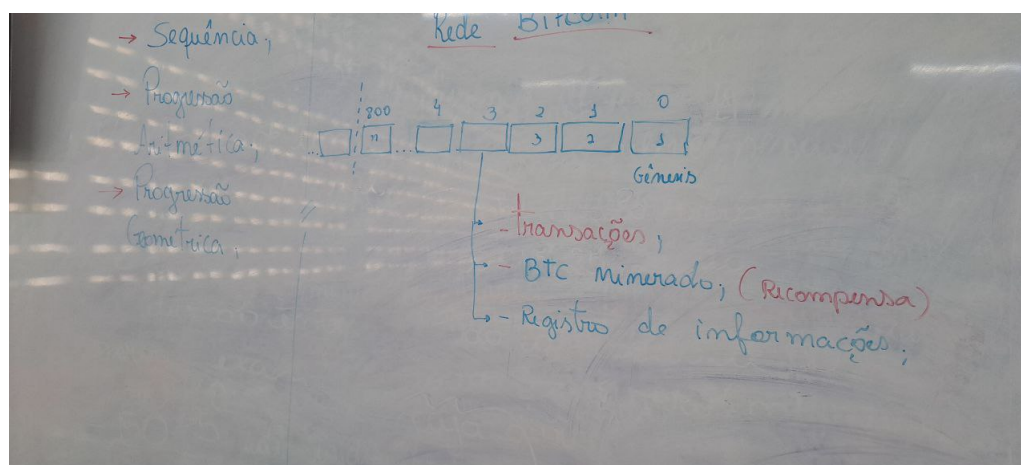 Rede BITCOIN
→ Sequência;
→ Progressão
Aritmética;
→ Progressão
Geométrica;
800 4 3 2 1 0
... n ... 3 2 1
Gênesis
- Transações;
- BTC Minerado; (Recompensa)
- Registro de informações;